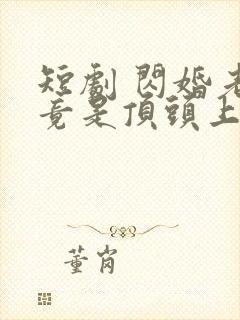 短劇 閃婚老
竟是頂頭上
董肖